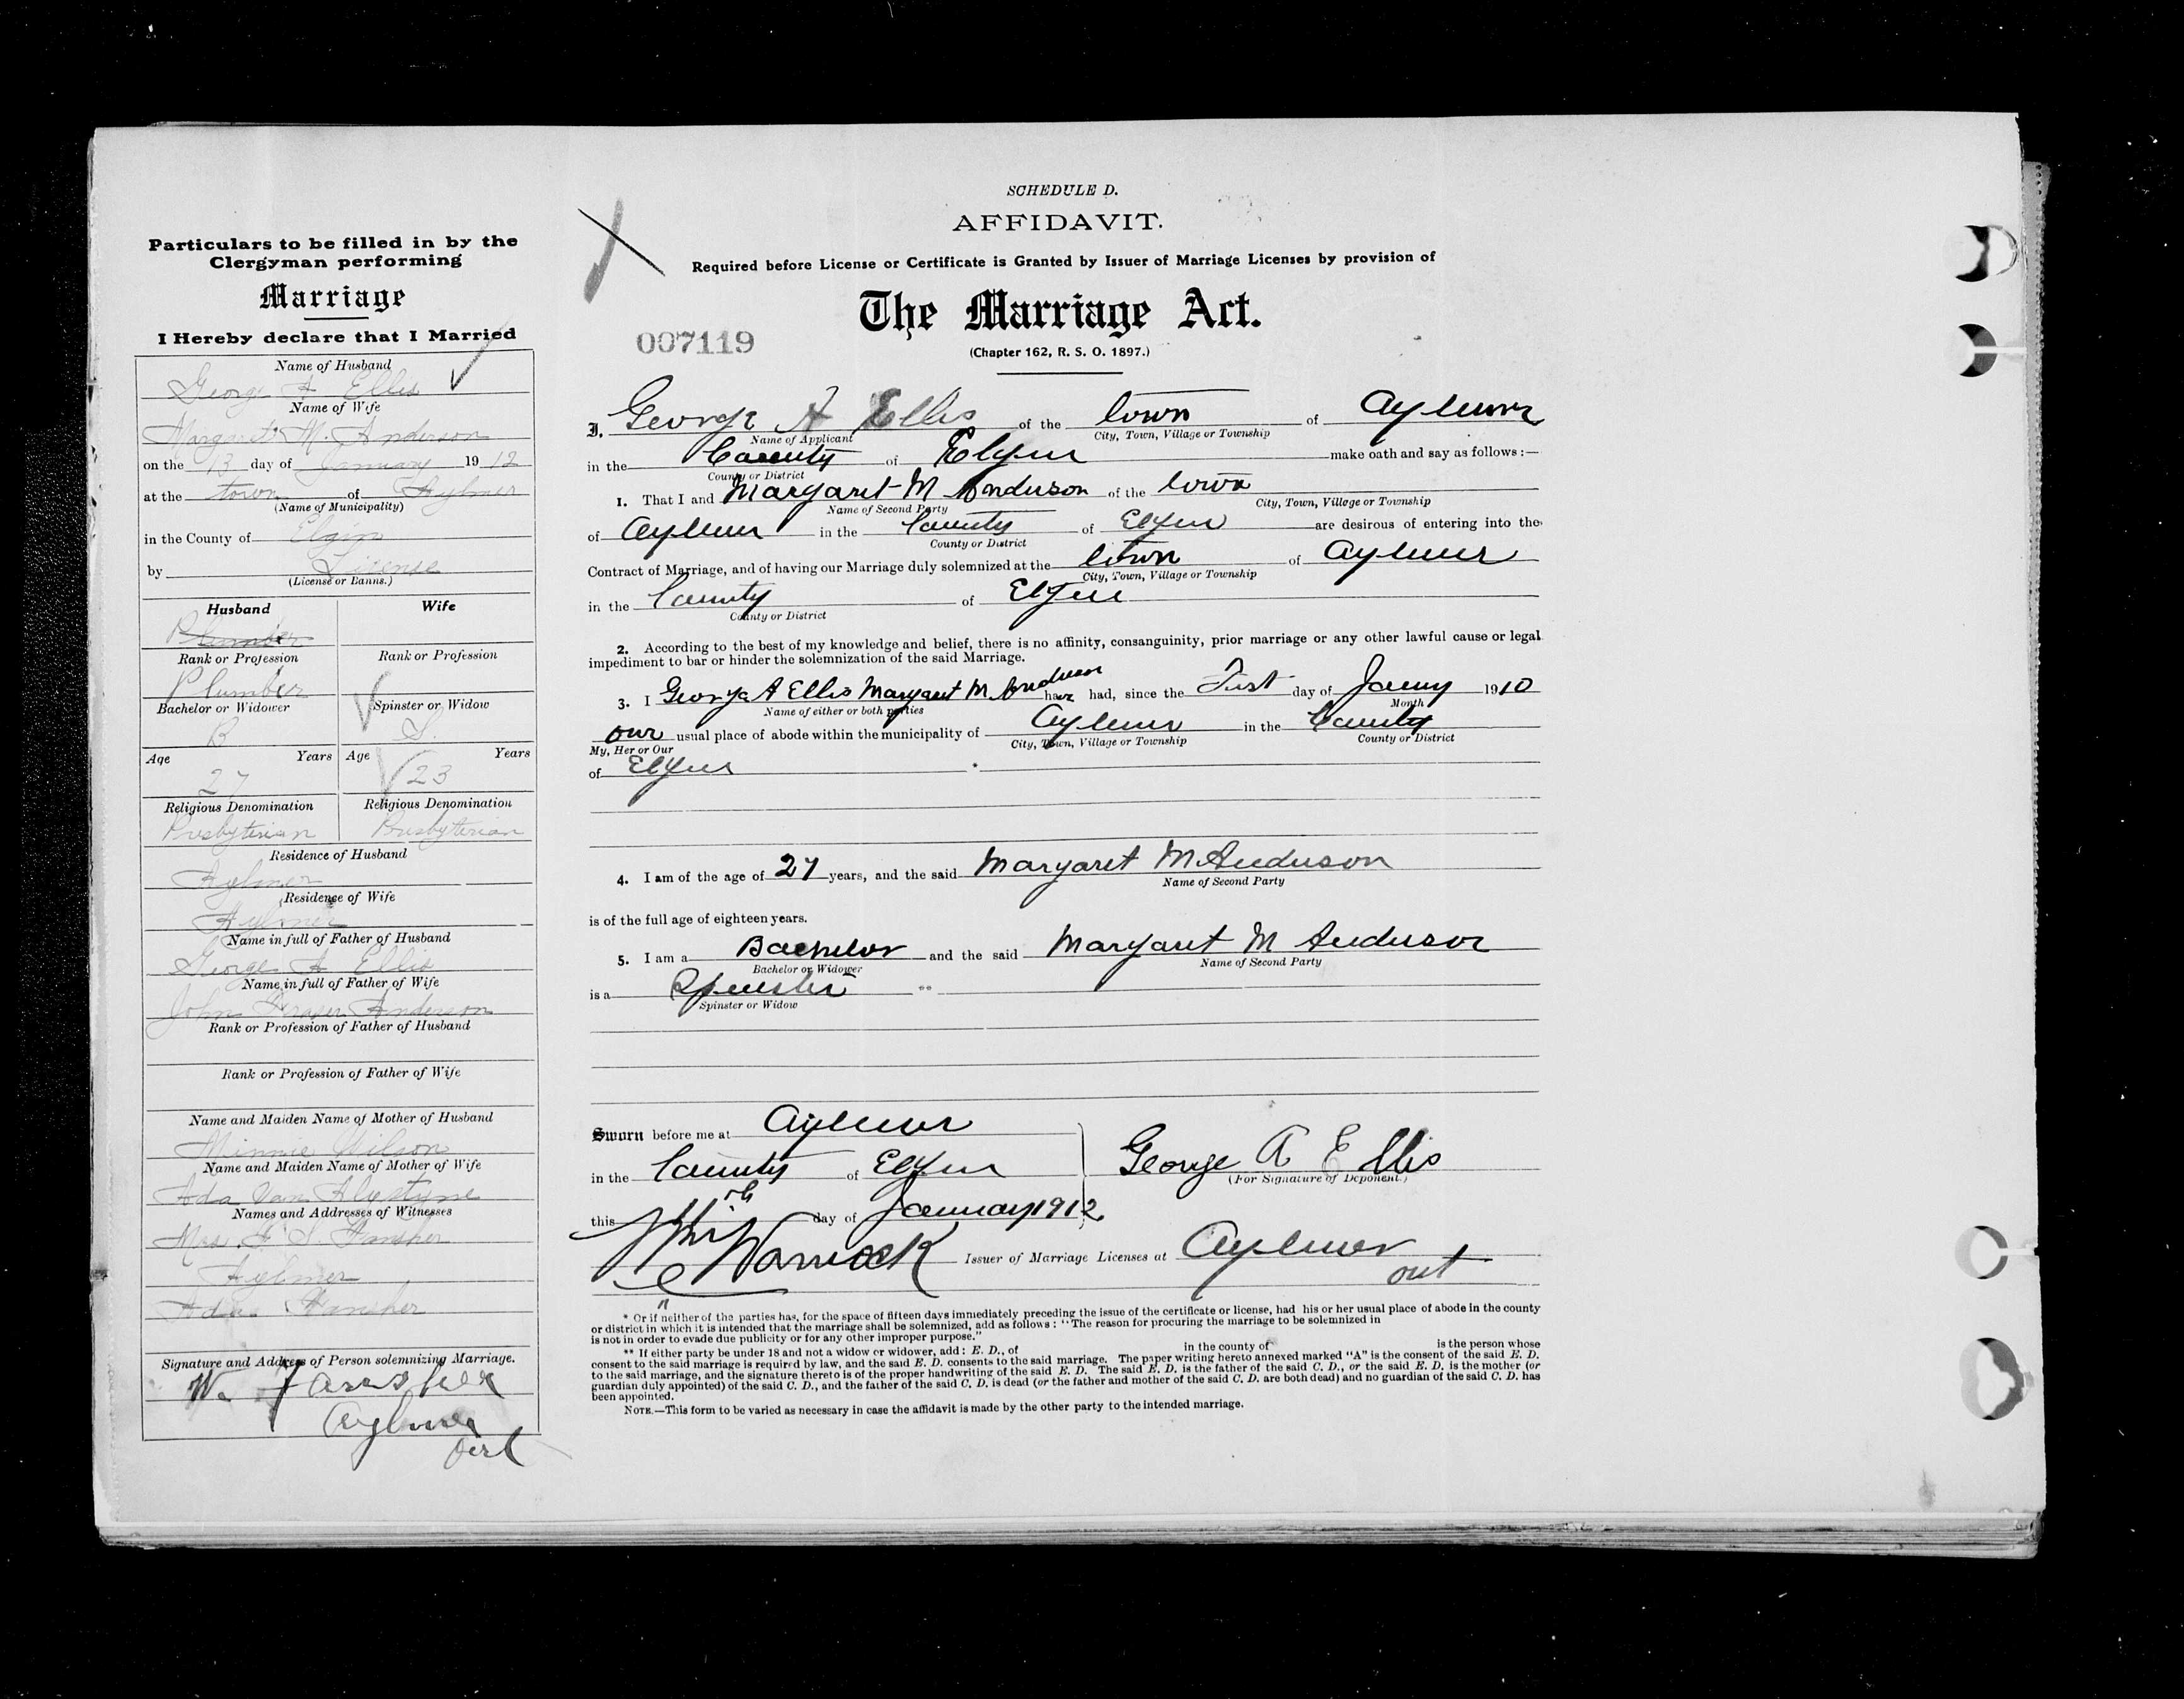 Particulars to be filled in by the
Clergyman performing
Marriage
I Hereby declare that I Married
Name of Husband
George A Ellis
Name of Wife
Margaret M. Anderson
on the 13 day of January 1912
at the town of Aylmer
(Name of Municipality)
in the County of Elgin
by License
(License or Banns.)
Husband Wife
Plumber
Rank or Profession Rank or Profession
Plumber
Bachelor or Widower Spinster or Widow
B S.
Age Years Age Years
27 23
Religious Denomination Religious Denomination
Presbyterian Presbyterian
Residence of Husband
Aylmer
Residence of Wife
Aylmer
Name in full of Father of Husband
George A Ellis
Name in full of Father of Wife
John Anderson
Rank or Profession of Father of Husband
Rank or Profession of Father of Wife
Name and Maiden Name of Mother of Husband
Minnie Wilson
Name and Maiden Name of Mother of Wife
Van Alystyne
Names and Addresses of Witnesses
Mrs.
Aylmer
Ada
Signature and Address of Person solemnizing Marriage.
W.
Aylmer
Ont
SCHEDULE D.
AFFIDAVIT.
Required before License or Certificate is Granted by Issuer of Marriage Licenses by provision of
The Marriage Act.
007119
(Chapter 162, R. S. O. 1897.)
I, George A Ellis of the town of Aylmer
Name of Applicant City, Town, Village or Township
in the County of Elgin make oath and say as follows:—
County or District
1. That I and Margaret M Anderson of the town
Name of Second Party City, Town, Village or Township
of Aylmer in the County of Elgin are desirous of entering into the
County or District
Contract of Marriage, and of having our Marriage duly solemnized at the town of Aylmer
City, Town, Village or Township
in the County of Elgin
County or District
2. According to the best of my knowledge and belief, there is no affinity, consanguinity, prior marriage or any other lawful cause or legal
impediment to bar or hinder the solemnization of the said Marriage.
3. I George A Ellis Margaret M Anderson have had, since the First day of Jany 1910
Name of either or both parties Month
our usual place of abode within the municipality of Aylmer in the County
My, Her or Our City, Town, Village or Township County or District
of Elgin
4. I am of the age of 27 years, and the said Margaret M Anderson
Name of Second Party
is of the full age of eighteen years.
5. I am a Bachelor and the said Margaret M Anderson
Bachelor or Widower Name of Second Party
is a Spinster **
Spinster or Widow
Sworn before me at Aylmer
in the County of Elgin George A Ellis
(For Signature of Deponent.)
this 11th day of January 1912
Warnock Issuer of Marriage Licenses at Aylmer
Ont
* Or if neither of the parties has, for the space of fifteen days immediately preceding the issue of the certificate or license, had his or her usual place of abode in the county
or district in which it is intended that the marriage shall be solemnized, add as follows: "The reason for procuring the marriage to be solemnized in
is not in order to evade due publicity or for any other improper purpose."
** If either party be under 18 and not a widow or widower, add: E. D., of in the county of is the person whose
consent to the said marriage is required by law, and the said E. D. consents to the said marriage. The paper writing hereto annexed marked "A" is the consent of the said E. D.
to the said marriage, and the signature thereto is of the proper handwriting of the said E. D. The said E. D. is the father of the said C. D., or the said E. D. is the mother (or
guardian duly appointed) of the said C. D., and the father of the said C. D. is dead (or the father and mother of the said C. D. are both dead) and no guardian of the said C. D. has
been appointed.
NOTE.—This form to be varied as necessary in case the affidavit is made by the other party to the intended marriage.